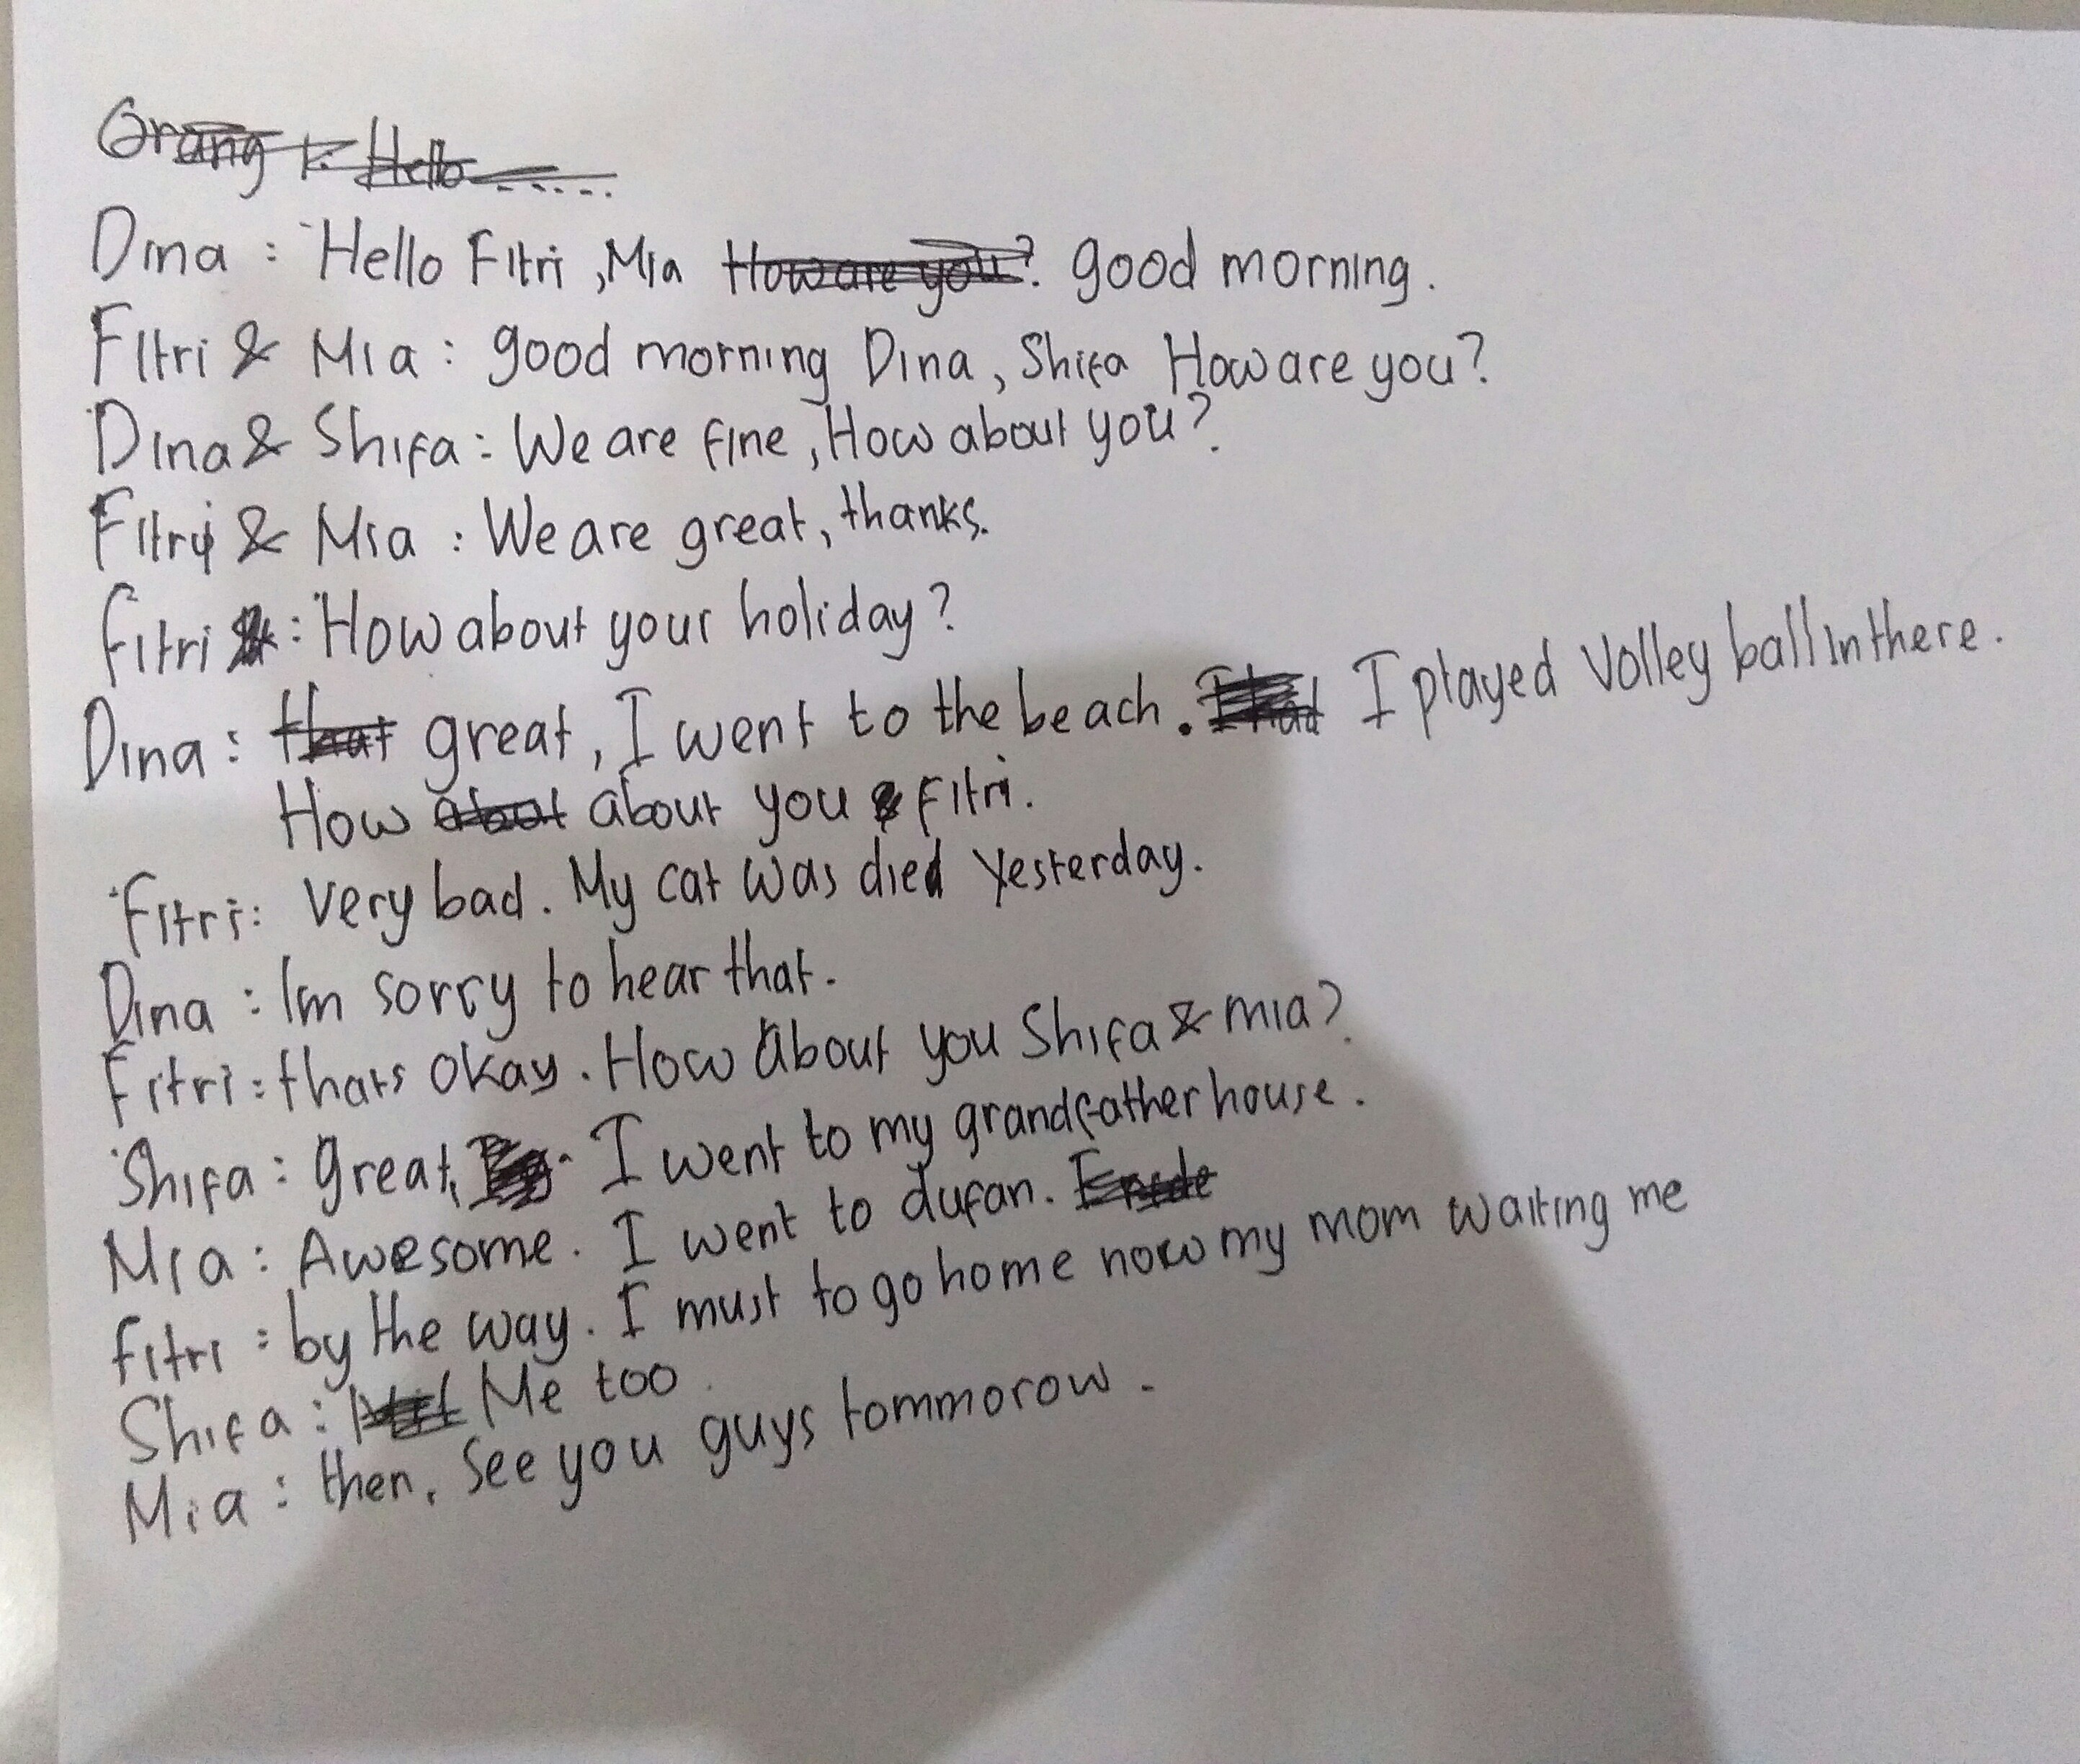 Orang 1: Hello ......
Dina : Hello Fitri, Mia How are you? good morning.
Fitri & Mia : good morning Dina, Shifa How are you?
Dina & Shifa : We are fine, How about you?
Fitri & Mia : We are great, thanks.
Fitri : How about your holiday?
Dina : that great, I went to the beach. I had I played Volley ball in there.
How about about you Fitri.
Fitri : very bad. My cat was died yesterday.
Dina : Im sorry to hear that.
Fitri : thats okay. How about you Shifa & mia?
Shifa : great, I went to my grandfather house.
Mia : Awesome. I went to dufan.
fitri : by the way. I must to go home now my mom waiting me
Shifa : Me too.
Mia : then, see you guys tommorow.